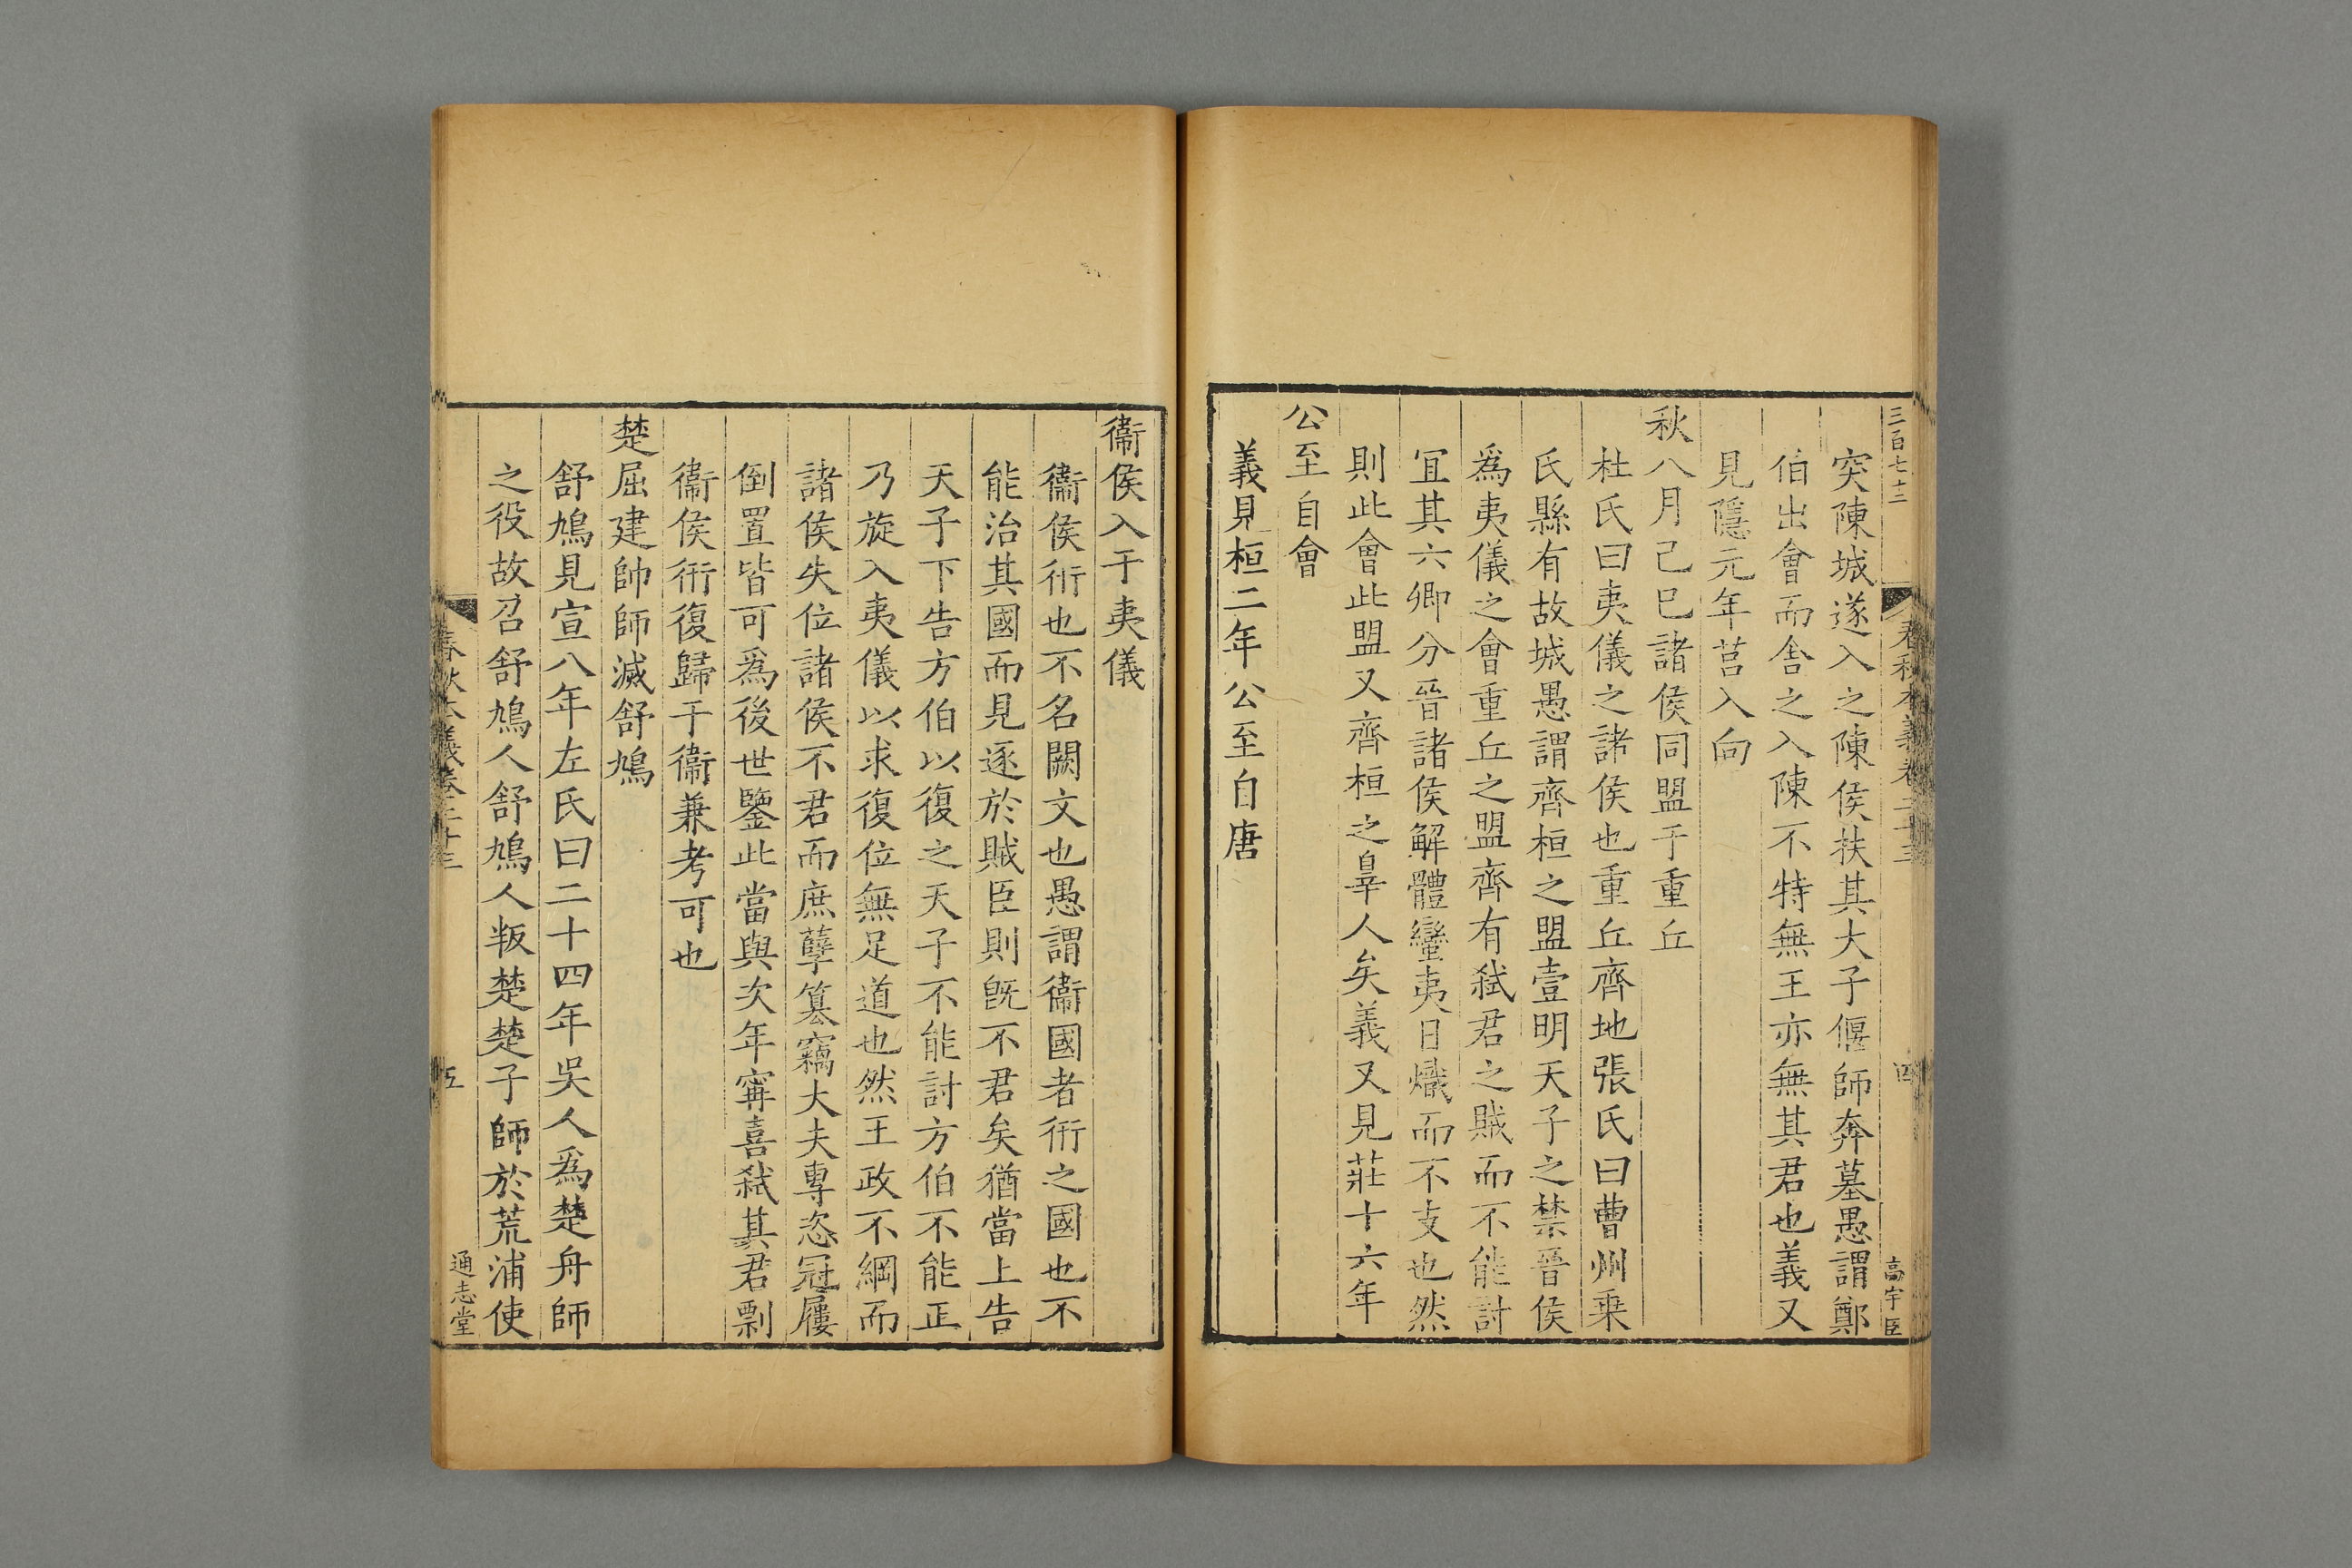 三百七十二
春秋本義卷二十三
四
高宇臣
突陳城遂入之陳侯扶其大子偃師奔墓愚謂鄭
伯出會而舍之入陳不特無王亦無其君也義又
見隱元年莒入向
秋八月己巳諸侯同盟于重丘
杜氏曰夷儀之諸侯也重丘齊地張氏曰曹州乘
氏縣有故城愚謂齊桓之盟壹明天子之禁晉侯
爲夷儀之會重丘之盟齊有弑君之賊而不能討
宜其六卿分晉諸侯解體蠻夷日熾而不支也然
則此會此盟又齊桓之辠人矣義又見莊十六年
公至自會
義見桓二年公至自唐
衞侯入于夷儀
衞侯衎也不名闕文也愚謂衞國者衎之國也不
能治其國而見逐於賊臣則旣不君矣猶當上告
天子下告方伯以復之天子不能討方伯不能正
乃旋入夷儀以求復位無足道也然王政不綱而
諸侯失位諸侯不君而庶孽篡竊大夫專恣冠屨
倒置皆可爲後世鑒此當與次年甯喜弑其君剽
衞侯衎復歸于衞兼考可也
楚屈建帥師滅舒鳩
舒鳩見宣八年左氏曰二十四年吳人爲楚舟師
之役故召舒鳩人舒鳩人叛楚楚子師於荒浦使
春秋本義卷二十三
五
通志堂